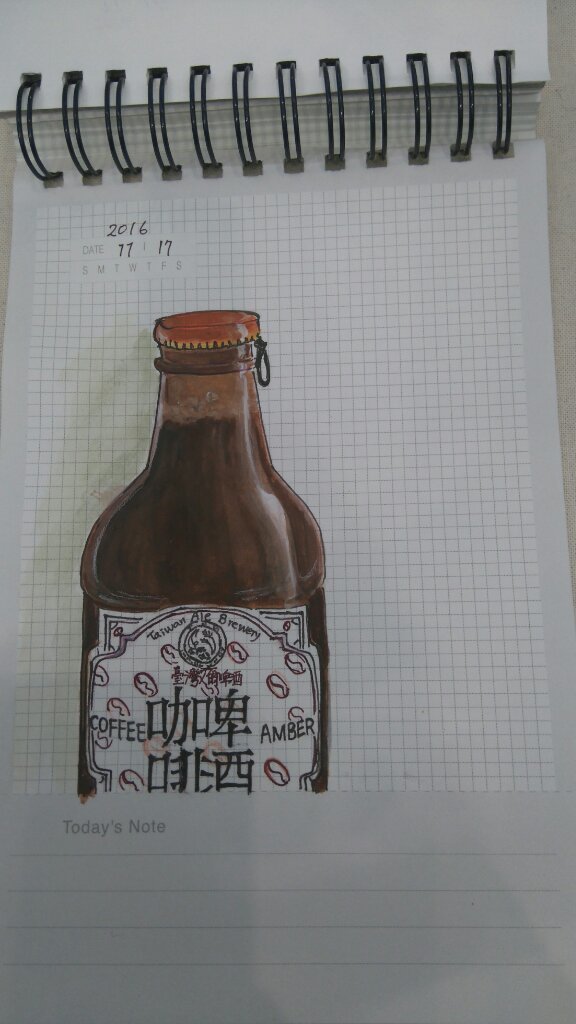 2016
DATE 11 | 17
S M T W T F S
Taiwan Ale Brewery
臺灣ㄨ爾啤酒
COFFEE 咖啤 AMBER
啡酒
Today's Note